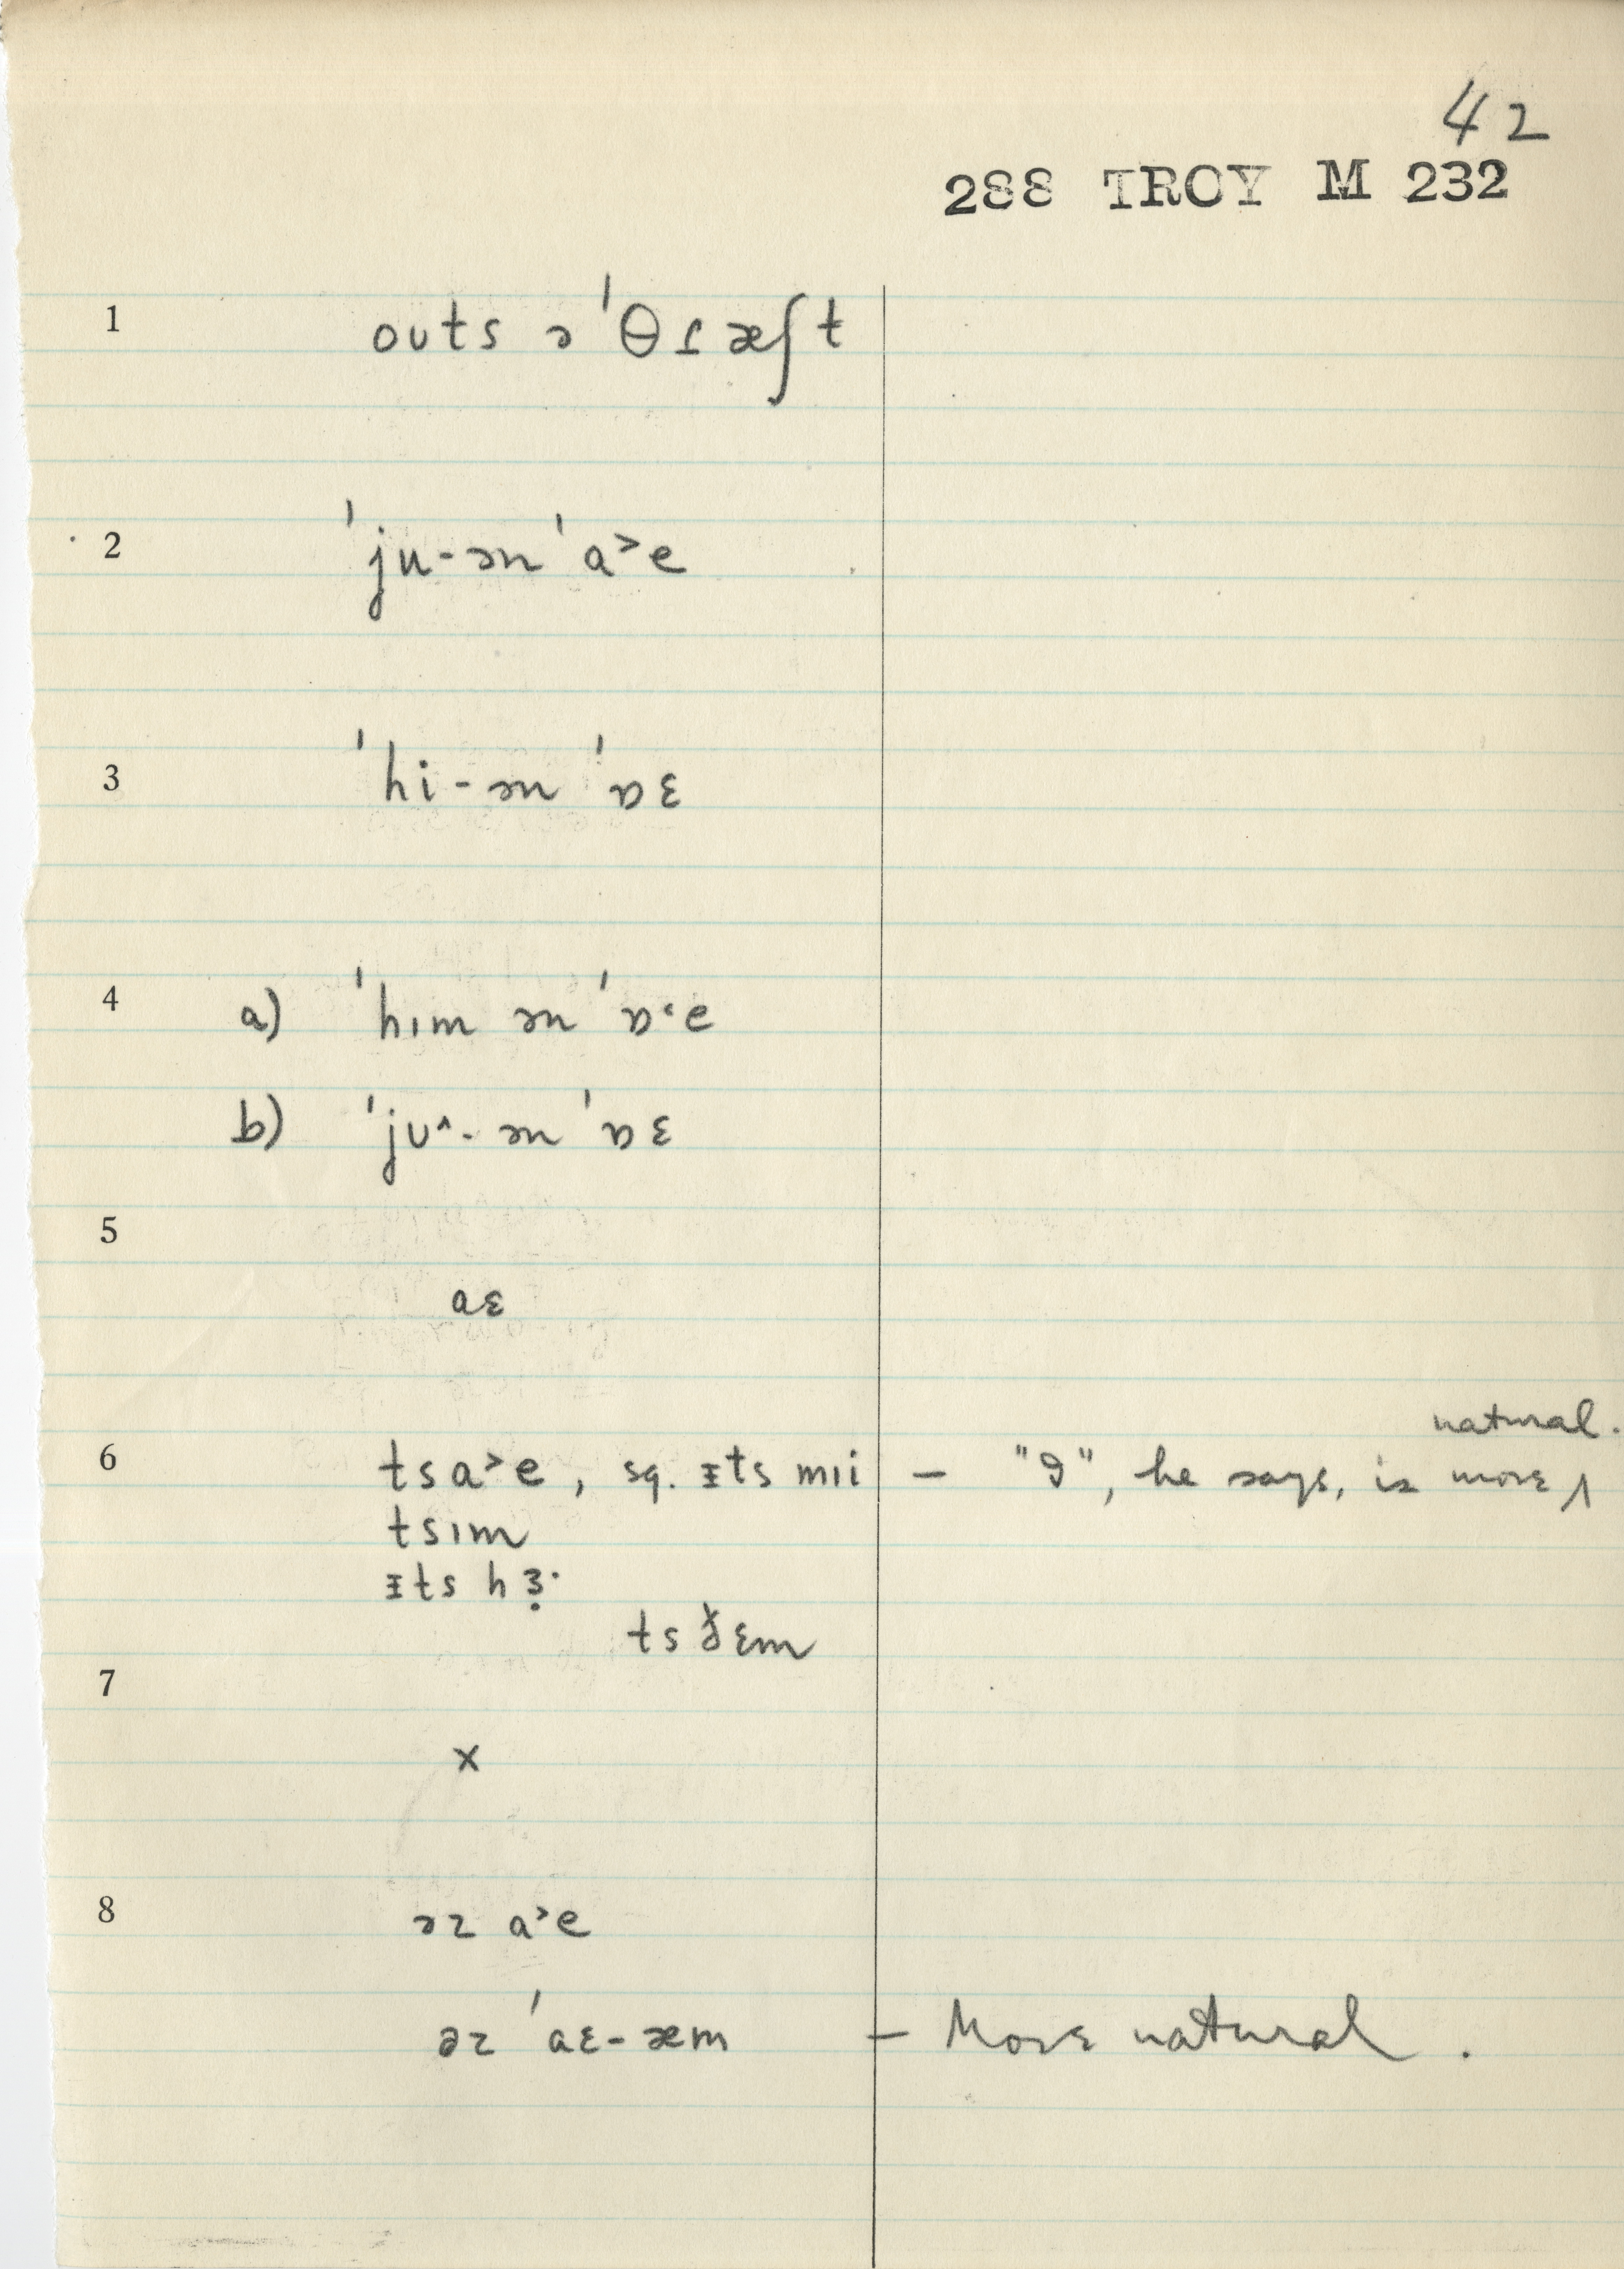 42
288 TROY M 232
1 outs ə ˈθɾæʃt
2 ˈju-ən ˈa˃e
3 ˈhi-ən ˈɒɛ
4 a) ˈhɪm ən ˈɒ˂e
b) ˈjʊ˄- ən ˈɒɛ
5
aɛ
6 tsa˃e, sq. ᵻts mɪi — "I", he says, is more ‸ natural.
tsɪm
ᵻts hɜ̣·
ts ɛm
7
x
8 əz a˃e
əz ˈaɛ-æm — More natural.